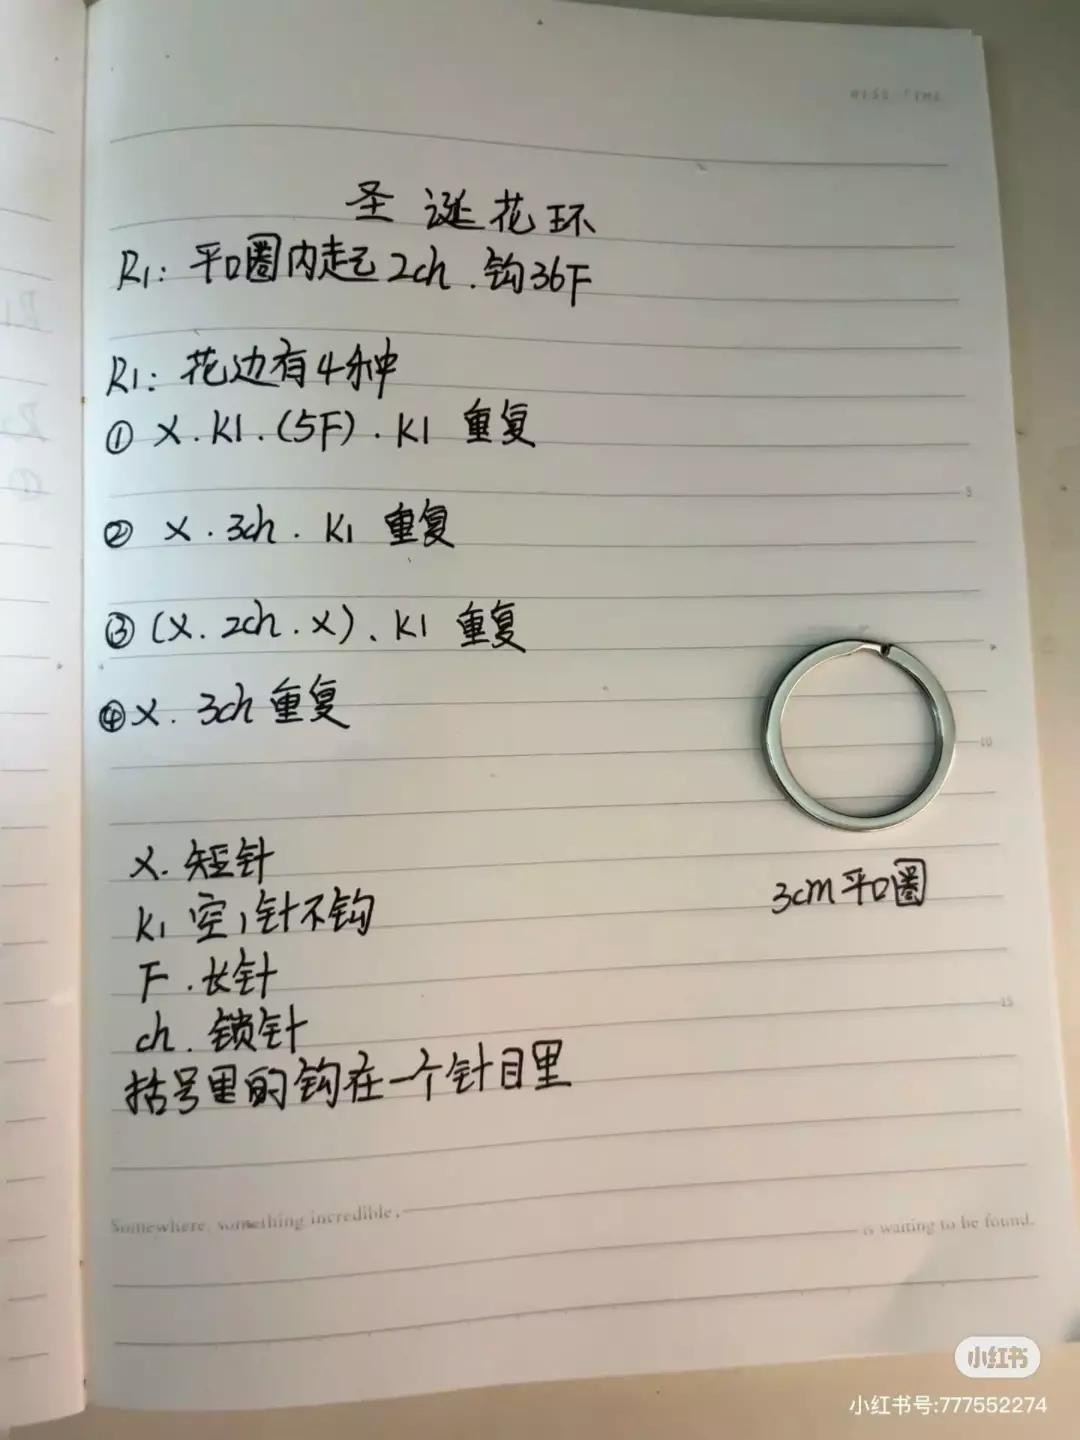 圣诞花环
R1: 平口圈内起2ch.钩36F
R1: 花边有4种
① X.K1.(5F).K1 重复
② X.3ch.K1 重复
③ (X.2ch.X)、K1 重复
④ X.3ch重复
3cm平口圈
X.短针
K1 空1针不钩
F.长针
ch.锁针
括号里的钩在一个针目里
5
10
15
Somewhere, something incredible,
is waiting to be found.
小红书
小红书号:777552274